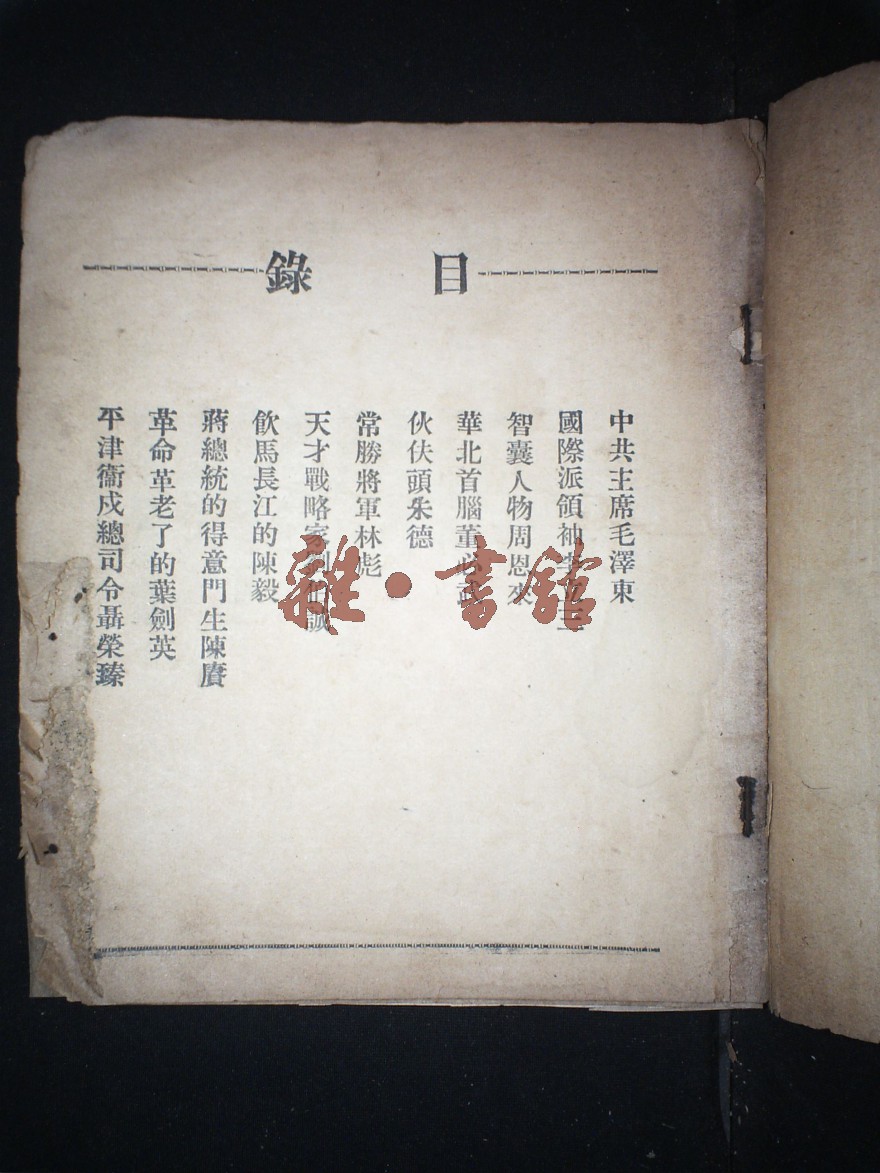 目錄
中共主席毛澤東
國際派領袖李立三
智囊人物周恩來
華北首腦董必武
伙伕頭朱德
常勝將軍林彪
天才戰略家劉伯誠
飲馬長江的陳毅
蔣總統的得意門生陳賡
革命革老了的葉劍英
平津衞戍總司令聶榮臻
雜·書館